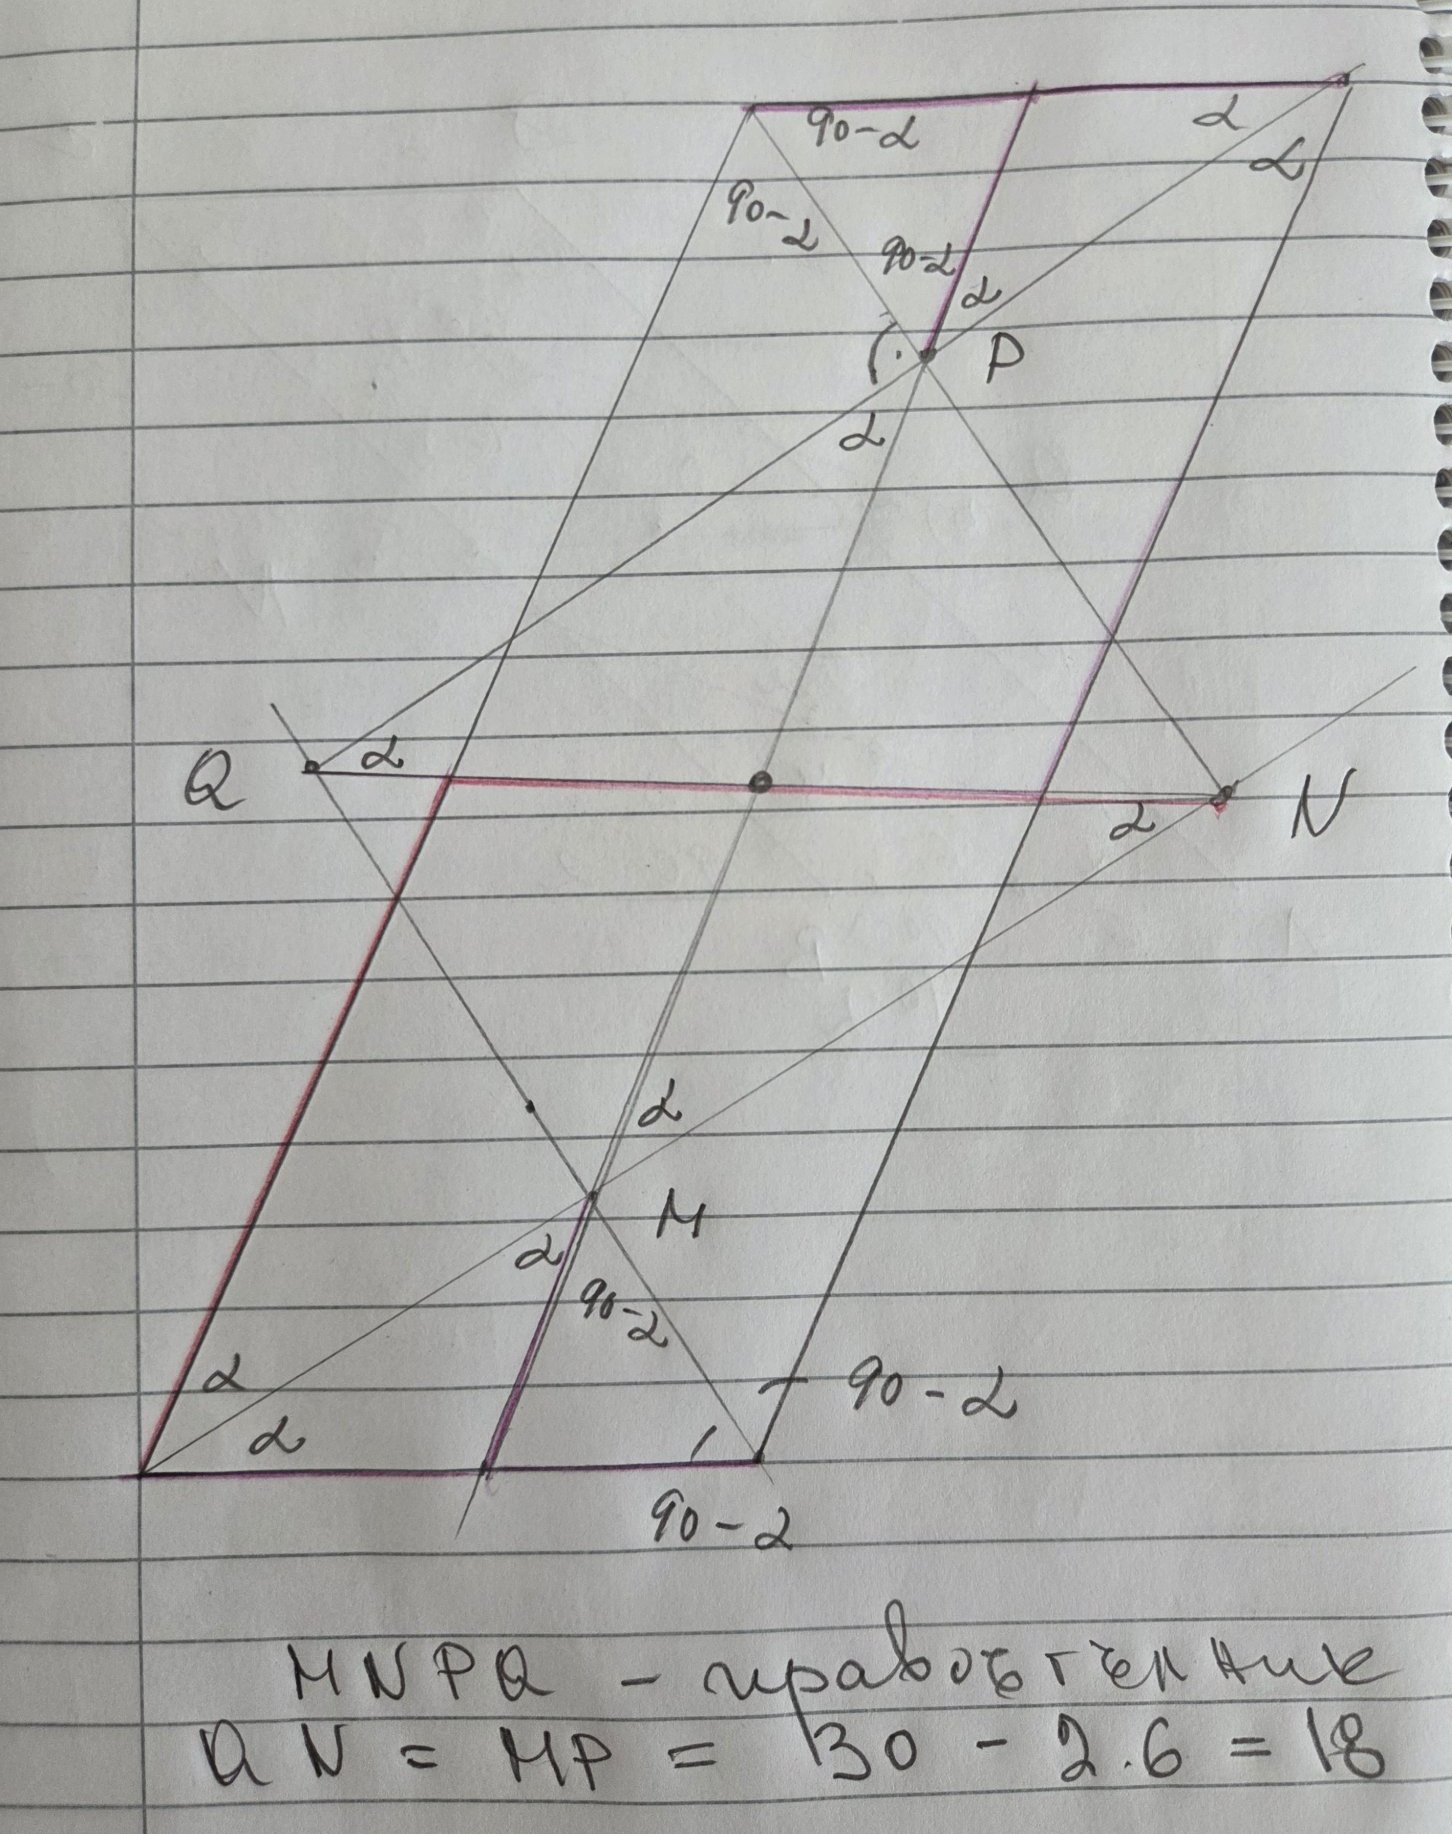 90-α
α
α
90-α
90-α
α
P
α
Q
α
α
N
α
M
α
90-α
α
α
90-α
90-α
MNPQ - правоъгълник
QN = MP = 30 - 2.6 = 18